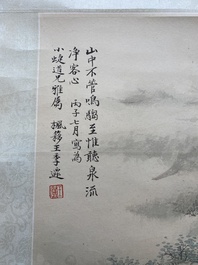 山中不管鳴騶至惟聽泉流
净客心 丙子七月寫為
小媫道兄雅屬 楓
王季遷